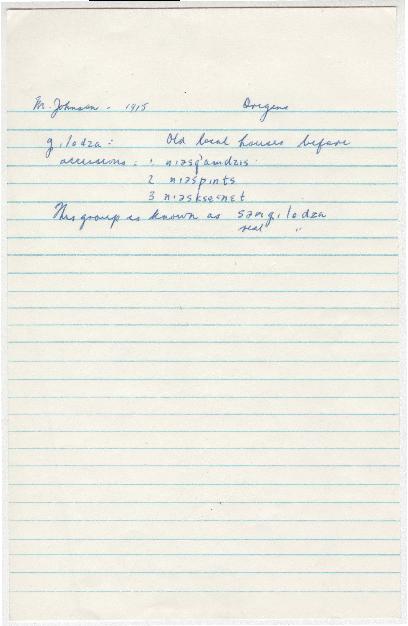 M. Johnson - 1915 Origens
g,lodza: Old local houses before
accessions: 1 niasqamdzis
2 niaspints
3 niasksesnet
This group is known as samg,lodza
real "